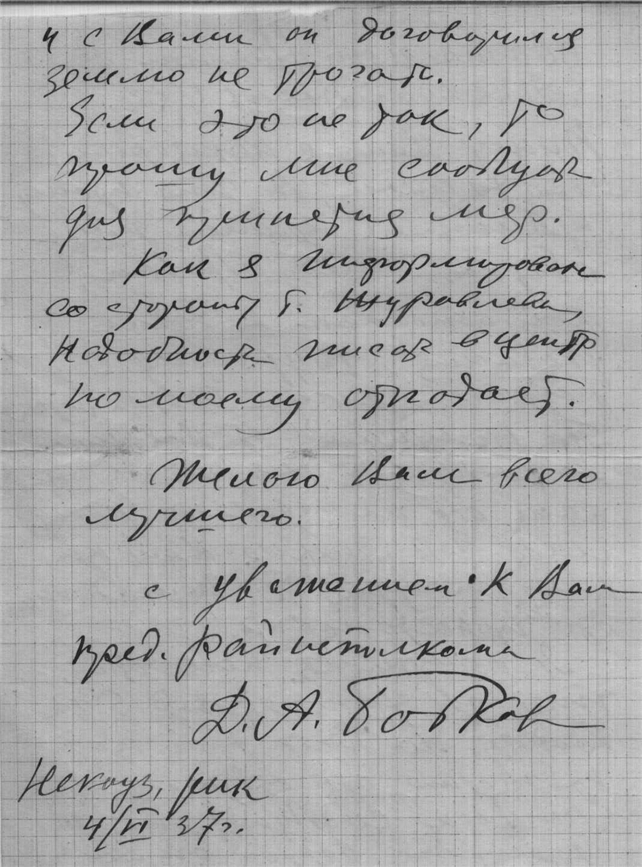 и с Вами он договорился
землю не трогать.
Если это не так, то
прошу мне сообщить
для принятия мер.
Как я информирован
со стороны т. Журавлева,
надобность писать в центр
по моему отпадает.
Желаю Вам всего
лучшего.
с уважением к Вам
пред. райисполкома
Д. А.
Некоуз, рик
4/VI 37 г.